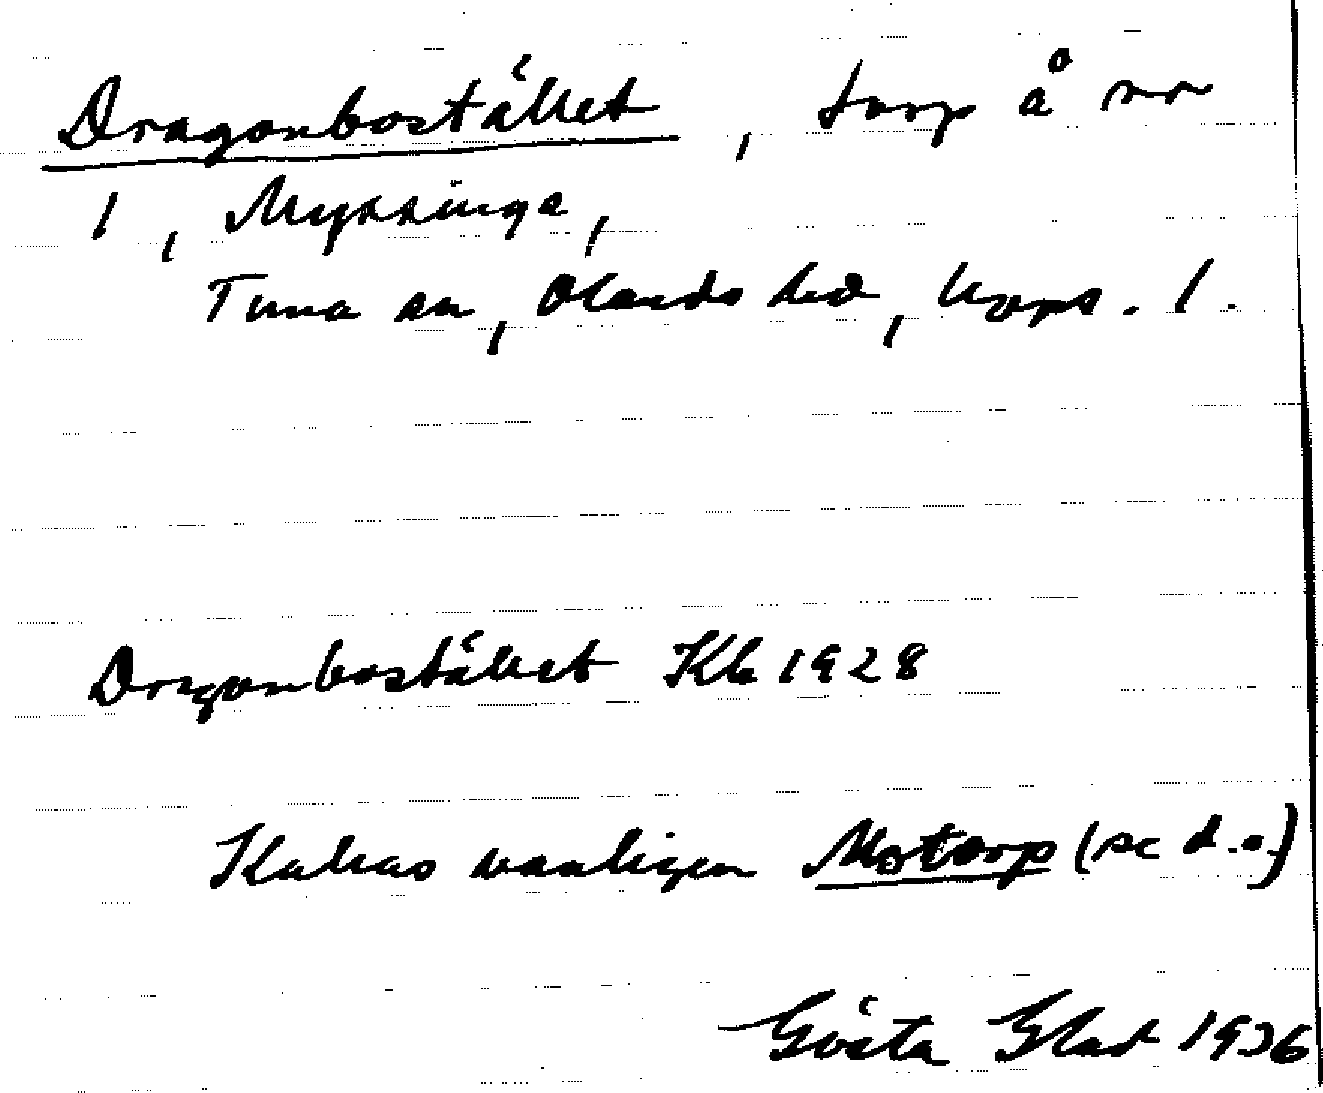 Dragonbostället, torp å nr
1, Mykinge,
Tuna sn, Olands hd, Upps. l.
Dragonbostället Kb 1928
Kallas vanligen Motorp (se d.o.)
Gösta Glad 1936